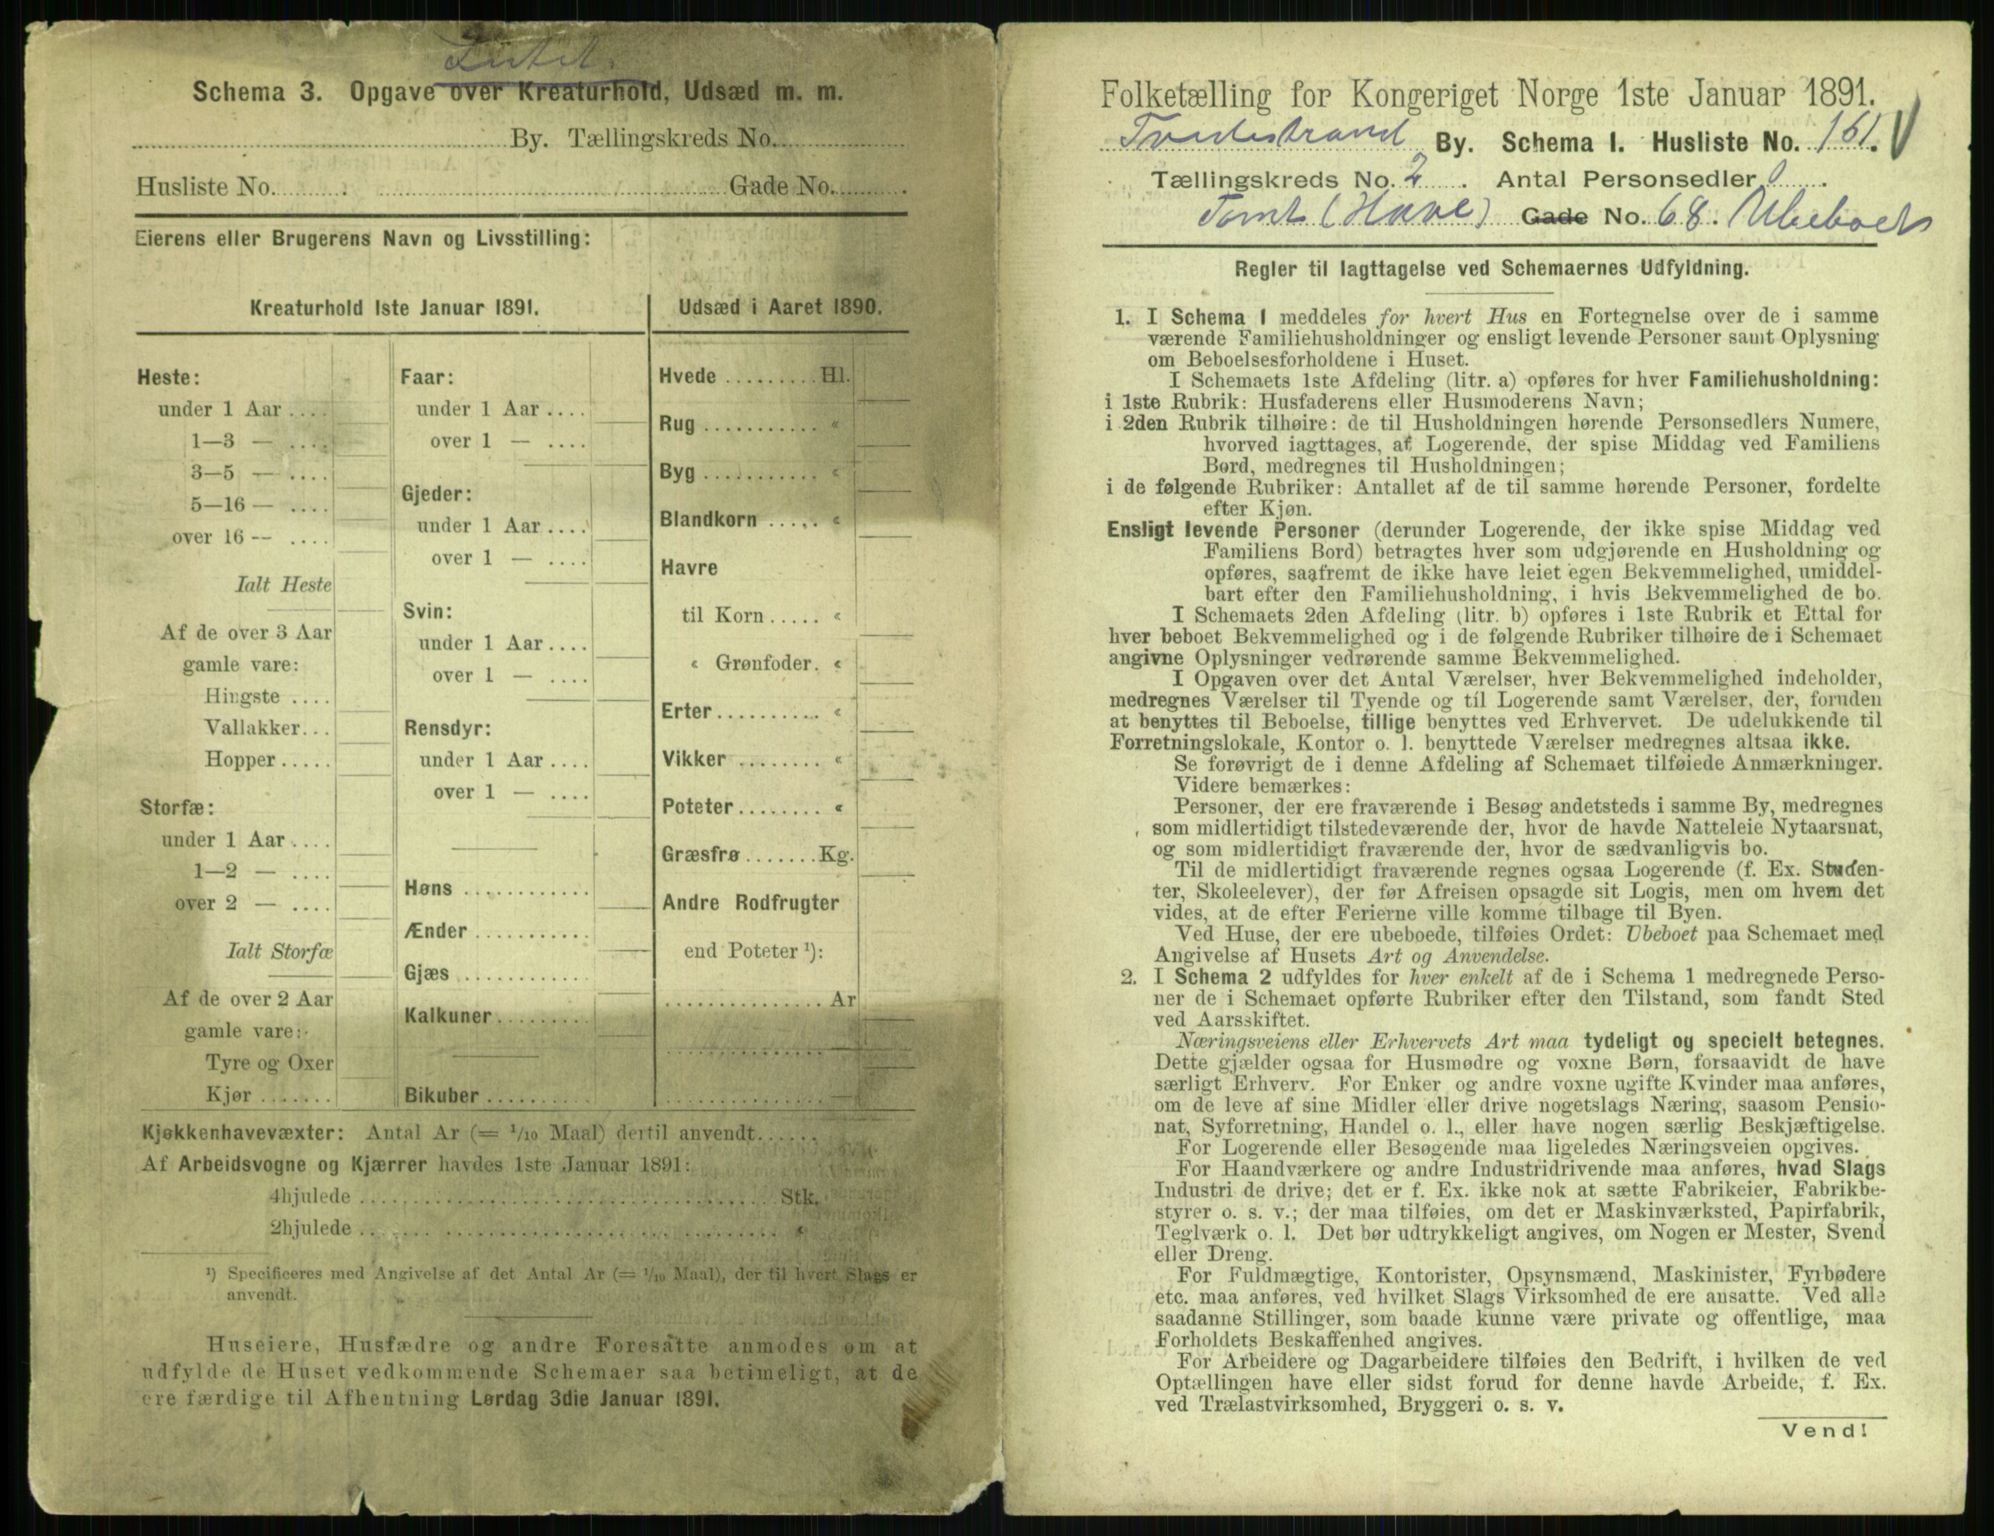 Schema 3. Opgave over Kreaturhold, Udsæd m. m.
By. Tællingskreds No.
Husliste No. Gade No.
Eierens eller Brugerens Navn og Livsstilling:
Kreaturhold 1ste Januar 1891.
Heste:
under 1 Aar
1—3 —
3—5 —
5—16 —
over 16 —
Ialt Heste
Af de over 3 Aar
gamle vare:
Hingste
Vallakker
Hopper
Storfæ:
under 1 Aar
1—2 —
over 2 —
Ialt Storfæ
Af de over 2 Aar
gamle vare:
Tyre og Oxer
Kjør
Faar:
under 1 Aar
over 1 —
Gjeder:
under 1 Aar
over 1 —
Svin:
under 1 Aar
over 1 —
Rensdyr:
under 1 Aar
over 1 —
Høns
Ænder
Gjæs
Kalkuner
Bikuber
Udsæd i Aaret 1890.
Hvede Hl.
Rug «
Byg «
Blandkorn «
Havre
til Korn «
« Grønfoder. «
Erter «
Vikker «
Poteter «
Græsfrø Kg.
Andre Rodfrugter
end Poteter ¹):
Ar
—
—
Kjøkkenhavevæxter: Antal Ar (= 1/10 Maal) dertil anvendt
Af Arbeidsvogne og Kjærrer havdes 1ste Januar 1891:
4hjulede Stk.
2hjulede «
¹) Specificeres med Angivelse af det Antal Ar (= 1/10 Maal), der til hvert Slags er
anvendt.
Huseiere, Husfædre og andre Foresatte anmodes om at
udfylde de Huset vedkommende Schemaer saa betimeligt, at de
ere færdige til Afhentning Lørdag 3die Januar 1891.
Folketælling for Kongeriget Norge 1ste Januar 1891.
Tvedestrand By. Schema I. Husliste No. 161.
Tællingskreds No. 2. Antal Personsedler 0.
Tomt (Have) Gade No. 68. Ubeboet
Regler til Iagttagelse ved Schemaernes Udfyldning.
1. I Schema 1 meddeles for hvert Hus en Fortegnelse over de i samme
værende Familiehusholdninger og ensligt levende Personer samt Oplysning
om Beboelsesforholdene i Huset.
I Schemaets 1ste Afdeling (litr. a) opføres for hver Familiehusholdning:
i 1ste Rubrik: Husfaderens eller Husmoderens Navn;
i 2den Rubrik tilhøire: de til Husholdningen hørende Personsedlers Numere,
hvorved iagttages, at Logerende, der spise Middag ved Familiens
Bord, medregnes til Husholdningen;
i de følgende Rubriker: Antallet af de til samme hørende Personer, fordelte
efter Kjøn.
Ensligt levende Personer (derunder Logerende, der ikke spise Middag ved
Familiens Bord) betragtes hver som udgjørende en Husholdning og
opføres, saafremt de ikke have leiet egen Bekvemmelighed, umiddel-
bart efter den Familiehusholdning, i hvis Bekvemmelighed de bo.
I Schemaets 2den Afdeling (litr. b) opføres i 1ste Rubrik et Ettal for
hver beboet Bekvemmelighed og i de følgende Rubriker tilhøire de i Schemaet
angivne Oplysninger vedrørende samme Bekvemmelighed.
I Opgaven over det Antal Værelser, hver Bekvemmelighed indeholder,
medregnes Værelser til Tyende og til Logerende samt Værelser, der, foruden
at benyttes til Beboelse, tillige benyttes ved Erhvervet. De udelukkende til
Forretningslokale, Kontor o. l. benyttede Værelser medregnes altsaa ikke.
Se forøvrigt de i denne Afdeling af Schemaet tilføiede Anmærkninger.
Videre bemærkes:
Personer, der ere fraværende i Besøg andetsteds i samme By, medregnes
som midlertidigt tilstedeværende der, hvor de havde Natteleie Nytaarsnat,
og som midlertidigt fraværende der, hvor de sædvanligvis bo.
Til de midlertidigt fraværende regnes ogsaa Logerende (f. Ex. Studen-
ter, Skoleelever), der før Afreisen opsagde sit Logis, men om hvem det
vides, at de efter Ferierne ville komme tilbage til Byen.
Ved Huse, der ere ubeboede, tilføies Ordet: Ubeboet paa Schemaet med
Angivelse af Husets Art og Anvendelse.
2. I Schema 2 udfyldes for hver enkelt af de i Schema 1 medregnede Perso-
ner de i Schemaet opførte Rubriker efter den Tilstand, som fandt Sted
ved Aarsskiftet.
Næringsveiens eller Erhvervets Art maa tydeligt og specielt betegnes.
Dette gjælder ogsaa for Husmødre og voxne Børn, forsaavidt de have
særligt Erhverv. For Enker og andre voxne ugifte Kvinder maa anføres,
om de leve af sine Midler eller drive nogetslags Næring, saasom Pensio-
nat, Syforretning, Handel o. l., eller have nogen særlig Beskjæftigelse.
For Logerende eller Besøgende maa ligeledes Næringsveien opgives.
For Haandværkere og andre Industridrivende maa anføres, hvad Slags
Industri de drive; det er f. Ex. ikke nok at sætte Fabrikeier, Fabrikbe-
styrer o. s. v.; der maa tilføies, om det er Maskinværksted, Papirfabrik,
Teglværk o. l. Det bør udtrykkeligt angives, om Nogen er Mester, Svend
eller Dreng.
For Fuldmægtige, Kontorister, Opsynsmænd, Maskinister, Fyrbødere
etc. maa anføres, ved hvilket Slags Virksomhed de ere ansatte. Ved alle
saadanne Stillinger, som baade kunne være private og offentlige, maa
Forholdets Beskaffenhed angives.
For Arbeidere og Dagarbeidere tilføies den Bedrift, i hvilken de ved
Optællingen have eller sidst forud for denne havde Arbeide, f. Ex.
ved Trælastvirksomhed, Bryggeri o. s. v.
Vend!